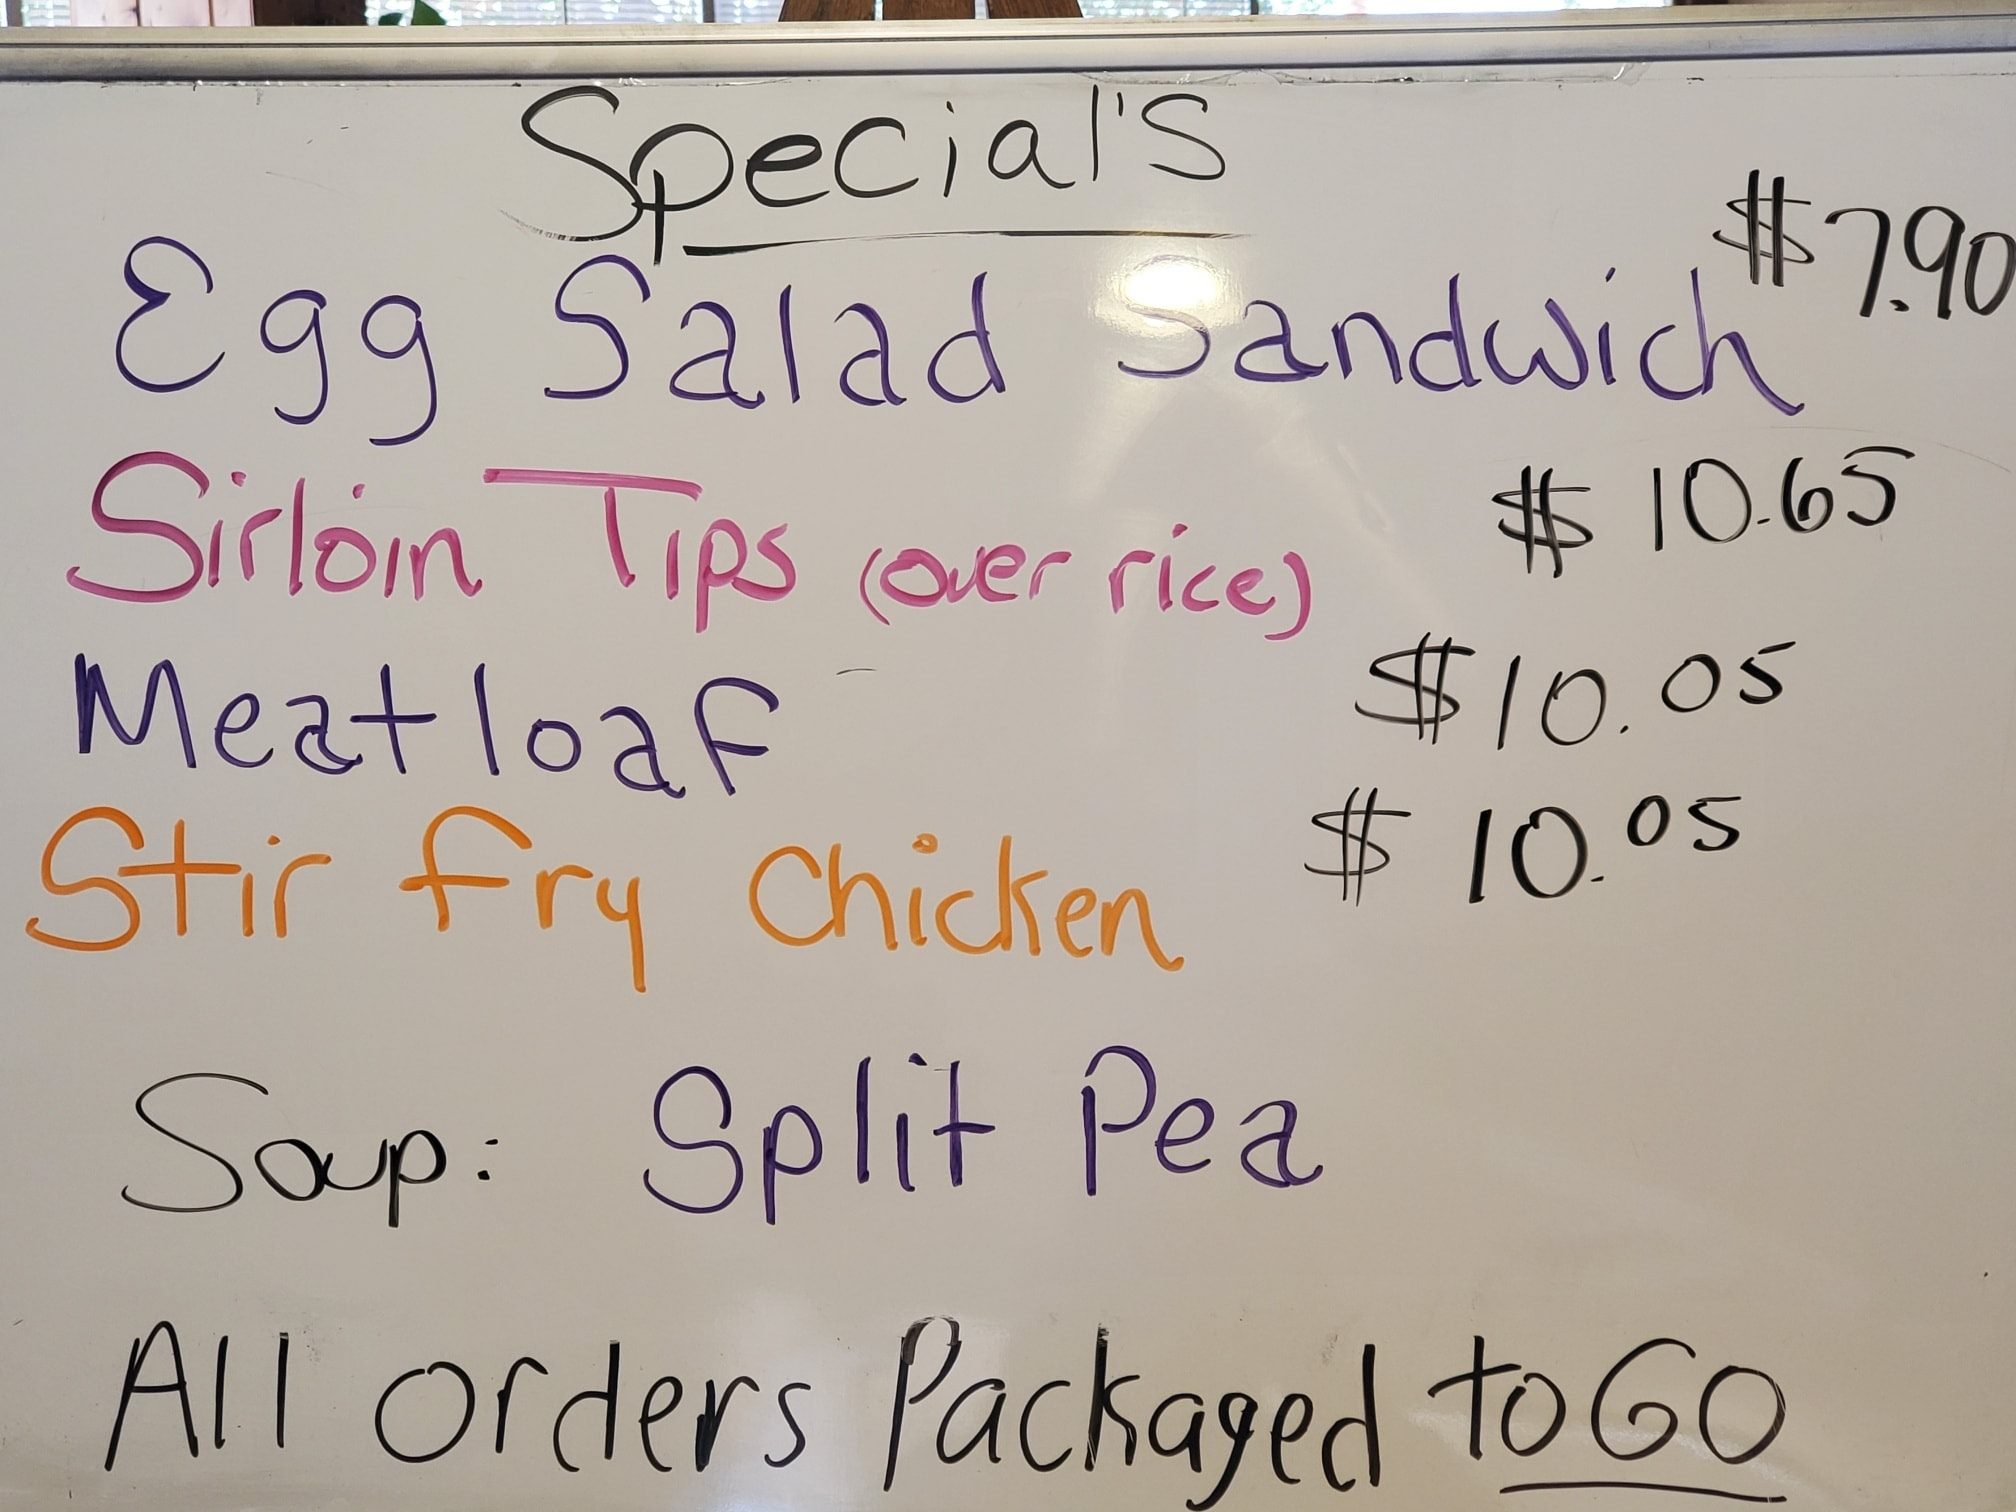 Special's
Egg Salad Sandwich $7.90
Sirloin Tips (over rice) $10.65
Meatloaf $10.05
Stir Fry Chicken $10.05
Soup: Split Pea
All Orders Packaged to GO